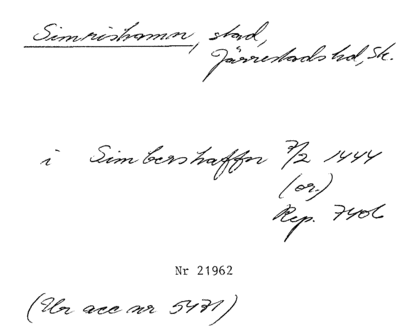 Simrishamn, stad,
Järrestads hd, Sk.
i Simbershaffn 7/2 1444
(or.)
Rep. 7406
Nr 21962
(Ur acc nr 5471)